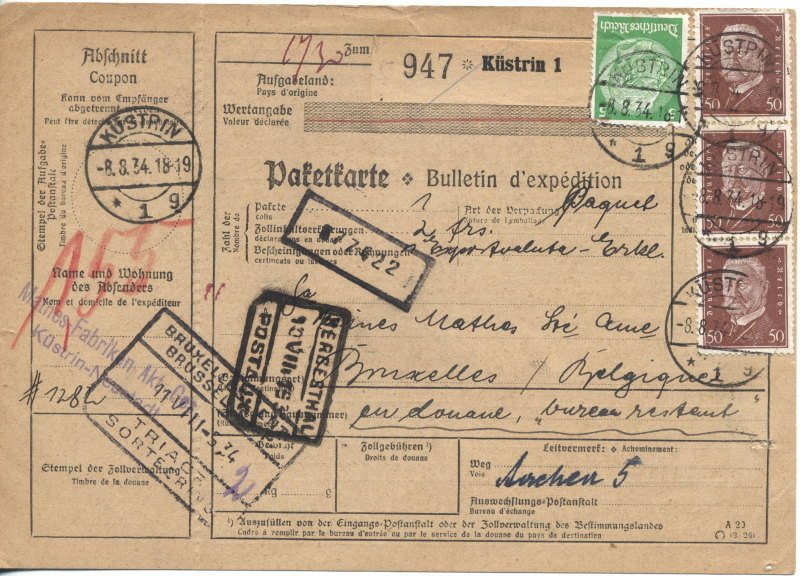 Abschnitt
Coupon
Kann vom Empfänger
abgetrennt werden
Peut être détaché
KÜSTRIN
-8.8.34.18-19
* 1 g
Stempel der Aufgabe-Postanstalt
Timbre du bureau d'origine
Name und Wohnung
des Absenders
Nom et domicile de l'expéditeur
Mathes Fabriken Akt.-Ges.
Küstrin-Neustadt
Stempel der Zollverwaltung
Timbre de la douane
1730
Zum
947 * Küstrin 1
Aufgabeland:
Pays d'origine
Wertangabe
Valeur déclarée
Paketkarte * Bulletin d'expédition
Zahl der
Nombre de
Pakete
colis
1
Art der Verpackung
Nature de l'emballage
Paquet
Zollinhaltserklärungen
déclarations en douane
2 frs.
Bescheinigungen oder Rechnungen
certificats ou
Exportvaluta-Erkl.
Mathes Sté Ame
Bruxelles / Belgique
en douane, "bureau restant"
HERBESTHAL
POSTALES
BRUXELLES
BRUSSEL
11 VIII 34
TRIAGE
Zollgebühren ¹)
Droits de douane
Leitvermerk: * Acheminement:
Weg
Voie
Aachen 5
Auswechslungs-Postanstalt
Bureau d'échange
Kg
g
¹) Auszufüllen von der Eingangs-Postanstalt oder der Zollverwaltung des Bestimmungslandes
Cadre à remplir par le bureau d'entrée ou par le service de la douane du pays de destination
A 23
(2. 26)
Deutsches Reich
5
KÜSTRIN
-8.8.34.18-19
* 1 g
50 50
KÜSTRIN
50 50
KÜSTRIN
50 50
KÜSTRIN